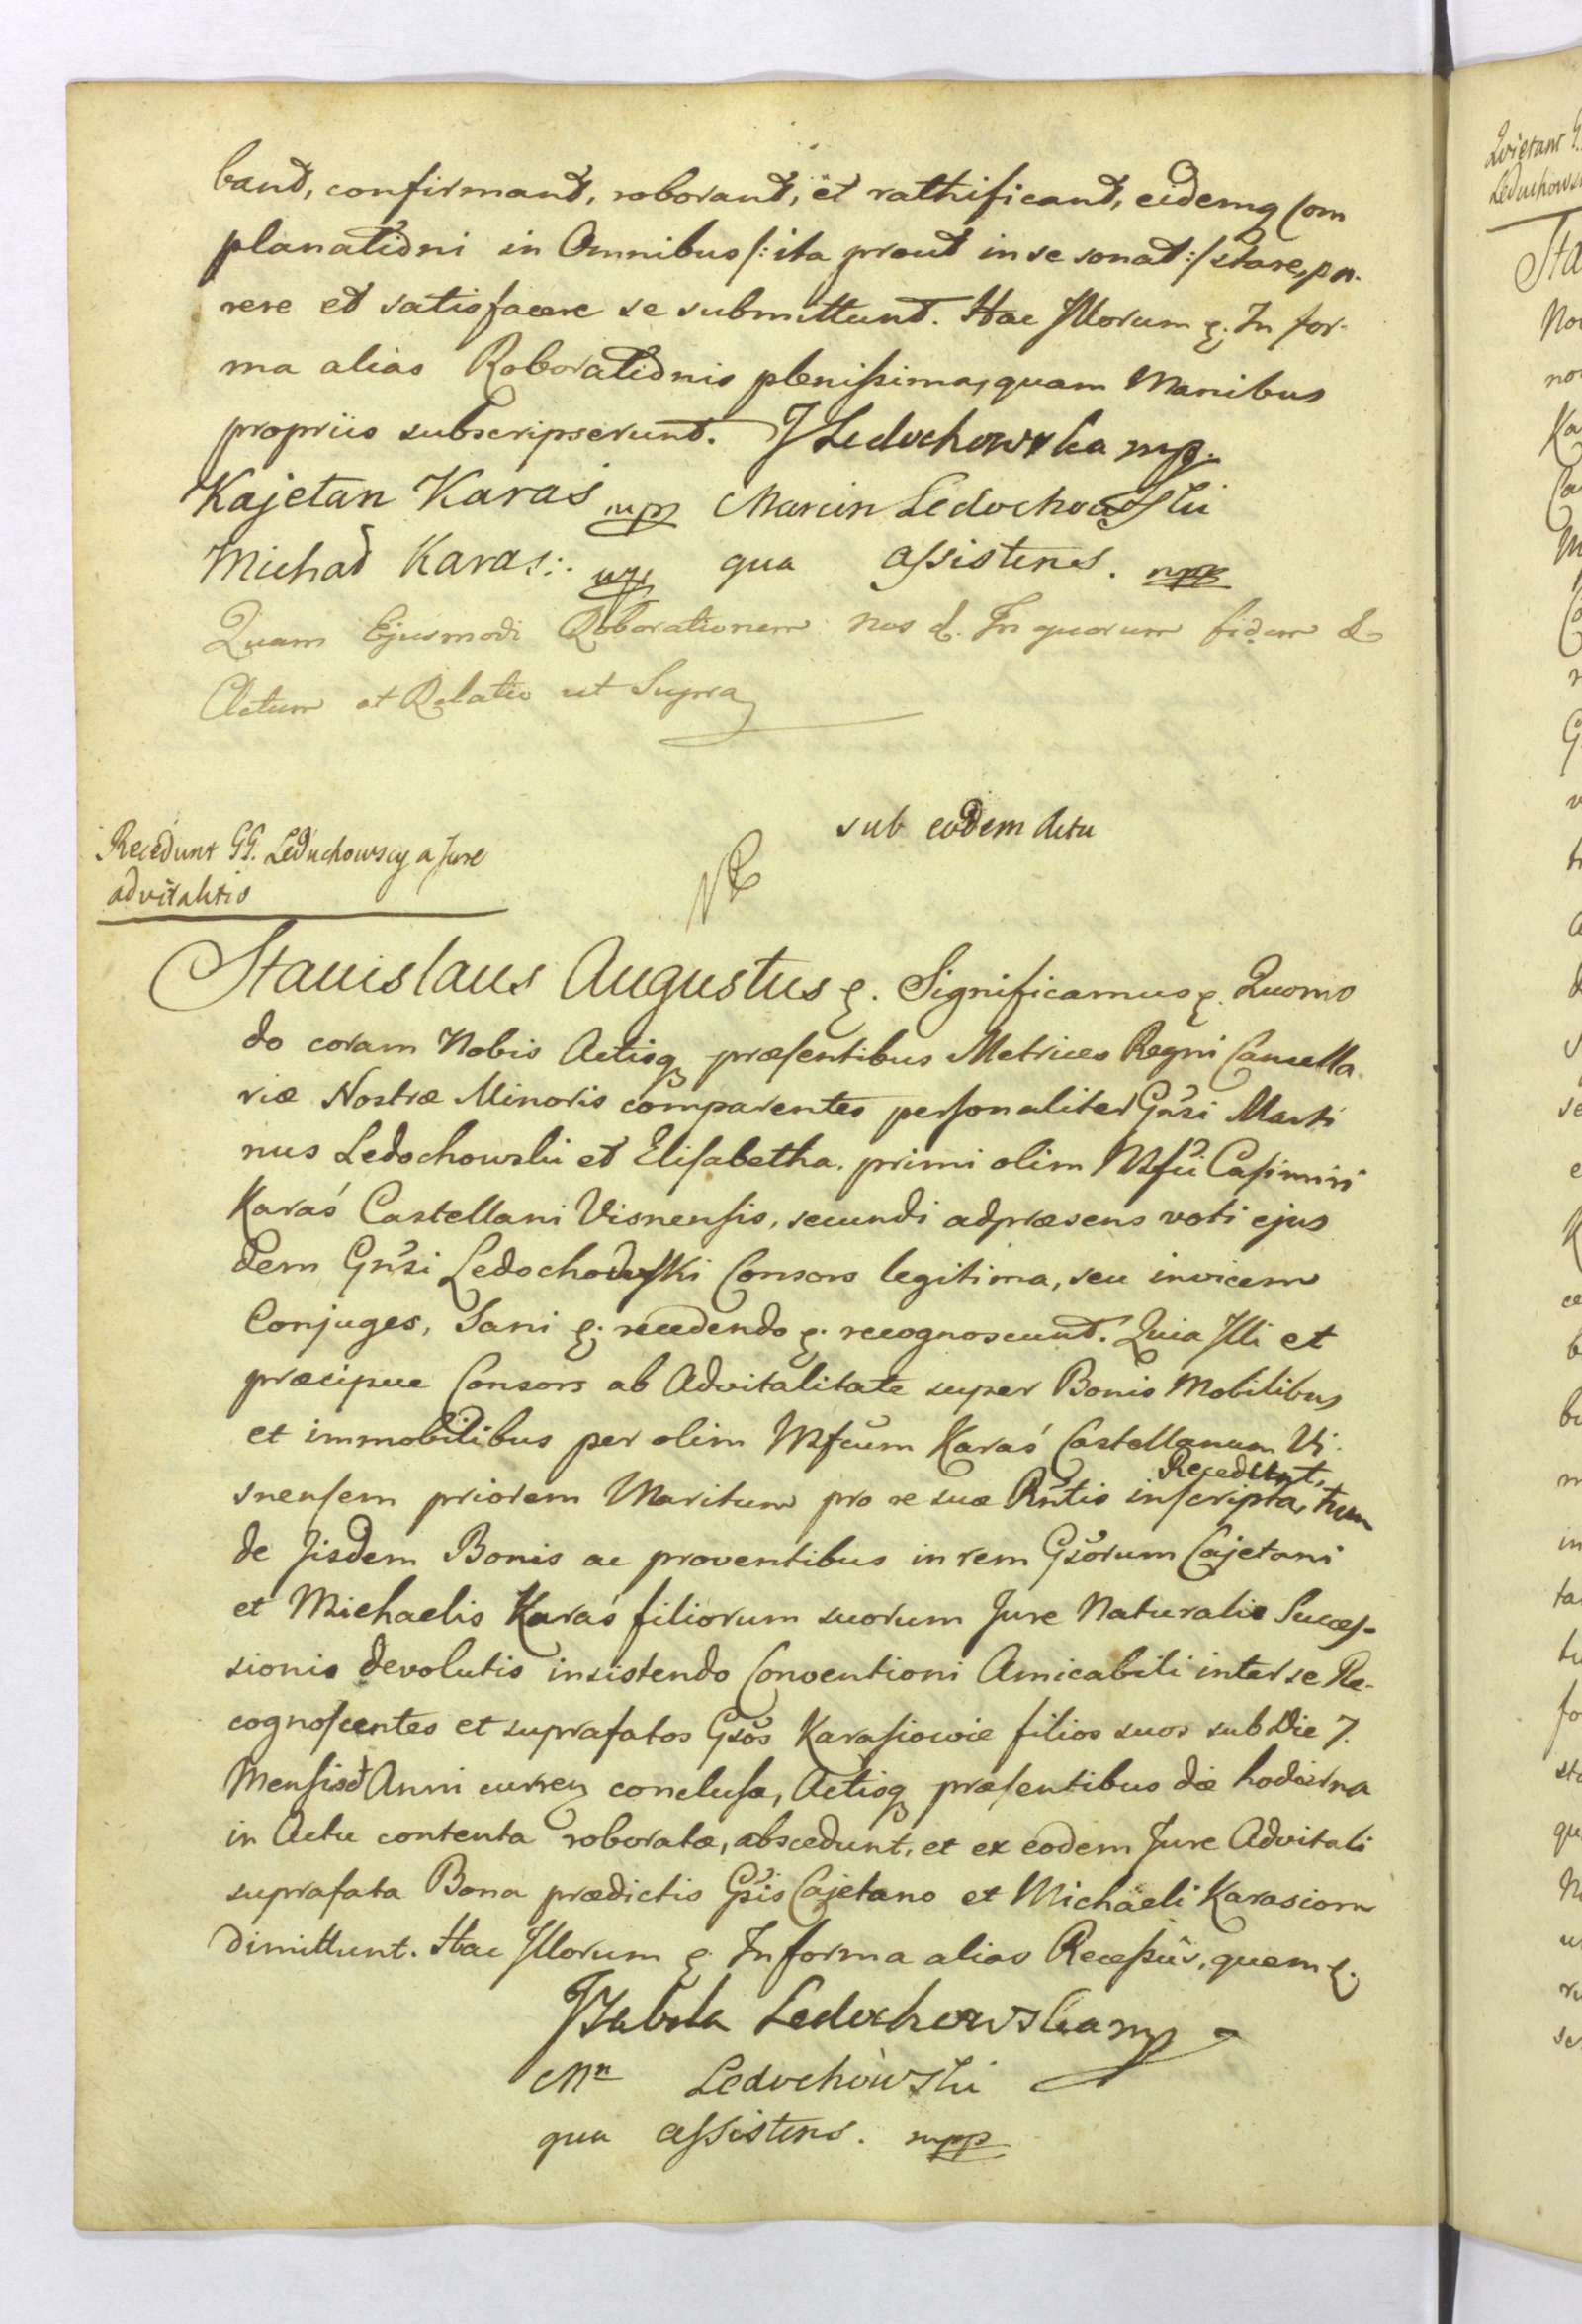 bant, confirmant, roborant, et rathificant, eidemq Com
planationi in Omnibus /: ita prout in se sonat :/ stare, pa-
rere et satisfacere se submittunt. Hac Illorum &. In for-
ma alias Roborationis plenissima, quam Manibus
propriis subscripserunt. J Ledochowska mp.
Kajetan Karaś mp Marcin Ledochowski
Michał Karaś: mp qua assistens. mpp
Quam Ejusmodi Roborationem nos &. In quorum fidem &
Actum et Relatio ut Supra
sub eodem Actu
Recedunt GG. Leduchowscy a Jure
advitalitio
Stanislaus Augustus &. Significamus &. Quomo
do coram Nobis Actisq præsentibus Metrices Regni Cancella
riæ Nostræ Minoris comparentes personaliter Gnsi Marti
nus Ledochowski et Elisabetha primi olim Mfci Casimiri
Karaś Castellani Visnensis, secundi adpræsens voti ejus
dem Gnsi Ledochowski Consors legitima, seu invicem
Conjuges, Sani &. recedendo &. recognoscunt. Quia Illi et
præcipue Consors ab Advitalitate super Bonis Mobilibus
et immobilibus per olim Mfcum Karaś Castellanum Vi-
snensem priorem Maritum pro re suæ Rntis inscripta, Recedunt, tum
de Iisdem Bonis ac proventibus in rem Gsorum Cajetani
et Michaelis Karaś filiorum suorum Jure Naturalis Succes-
sionis devolutis insistendo Conventioni Amicabili inter se Re-
cognoscentes et suprafatos Gsos Karasiowie filios suos sub Die 7.
Mensis et Anni curren conclusa, Actisq præsentibus die hodierna
in Actu contenta roboratæ, abscedunt, et ex eodem Jure Advitali
suprafata Bona prædictis Gsis Cajetano et Michaeli Karasiom
dimittunt. Hac Illorum &. In forma alias Recessus, quem &.
Izabela Ledochowska mp
Mn Ledochowski
qua assistens. mpp